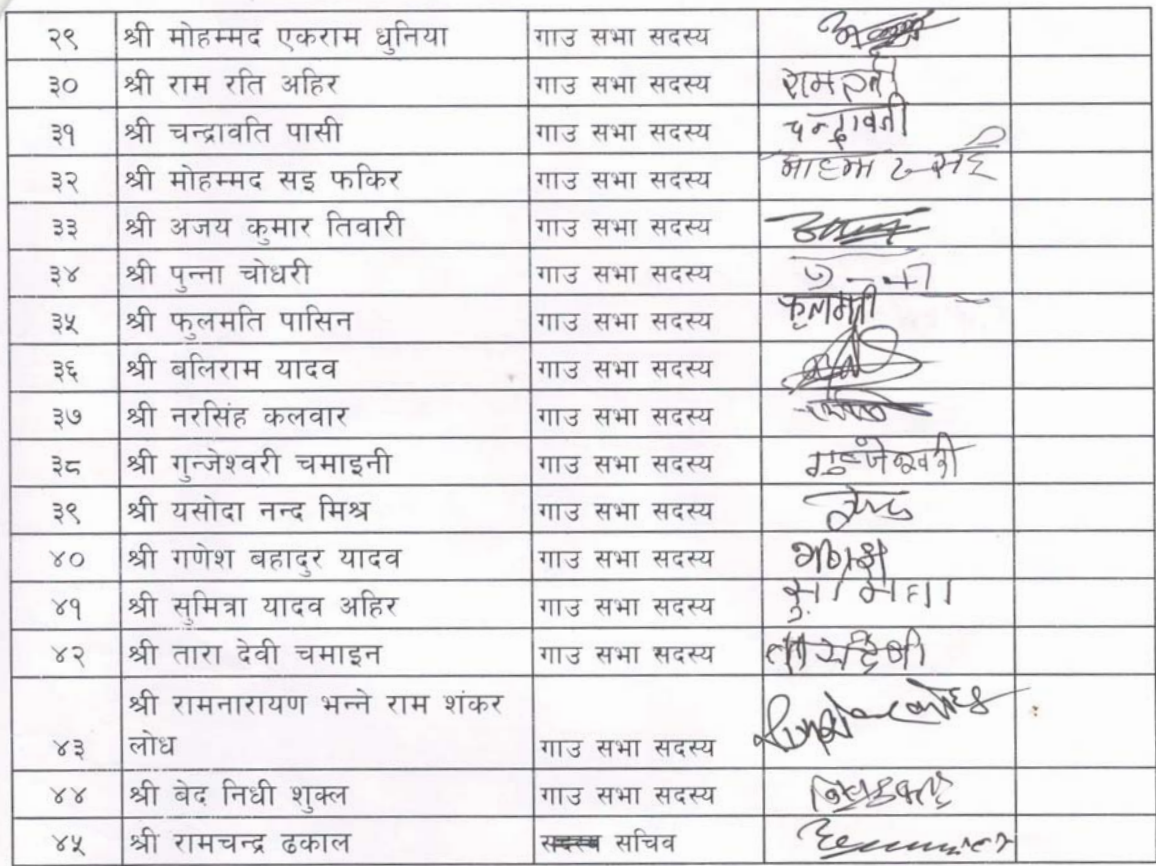 २९ श्री मोहम्मद एकराम धुनिया गाउ सभा सदस्य
३० श्री राम रति अहिर गाउ सभा सदस्य
३१ श्री चन्द्रावति पासी गाउ सभा सदस्य चन्द्रावती
३२ श्री मोहम्मद सइ फकिर गाउ सभा सदस्य
३३ श्री अजय कुमार तिवारी गाउ सभा सदस्य
३४ श्री पुन्ना चोधरी गाउ सभा सदस्य
३५ श्री फुलमति पासिन गाउ सभा सदस्य फुलमती
३६ श्री बलिराम यादव गाउ सभा सदस्य
३७ श्री नरसिंह कलवार गाउ सभा सदस्य
३८ श्री गुन्जेश्वरी चमाइनी गाउ सभा सदस्य
३९ श्री यसोदा नन्द मिश्र गाउ सभा सदस्य
४० श्री गणेश बहादुर यादव गाउ सभा सदस्य
४१ श्री सुमित्रा यादव अहिर गाउ सभा सदस्य
४२ श्री तारा देवी चमाइन गाउ सभा सदस्य
श्री रामनारायण भन्ने राम शंकर
४३ लोध गाउ सभा सदस्य
४४ श्री बेद निधी शुक्ल गाउ सभा सदस्य
४५ श्री रामचन्द्र ढकाल सदस्य सचिव